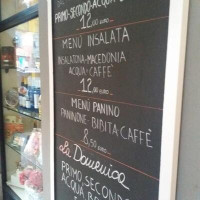 PRIMO-SECONDO-ACQUA
12,00 EURO
MENÙ INSALATA
INSALATONA-MACEDONIA
ACQUA-CAFFÈ
12,00 EURO
MENÙ PANINO
PANINONE-BIBITA CAFFÈ
8,50 EURO
La Domenica
PRIMO SECONDO
ACQUA